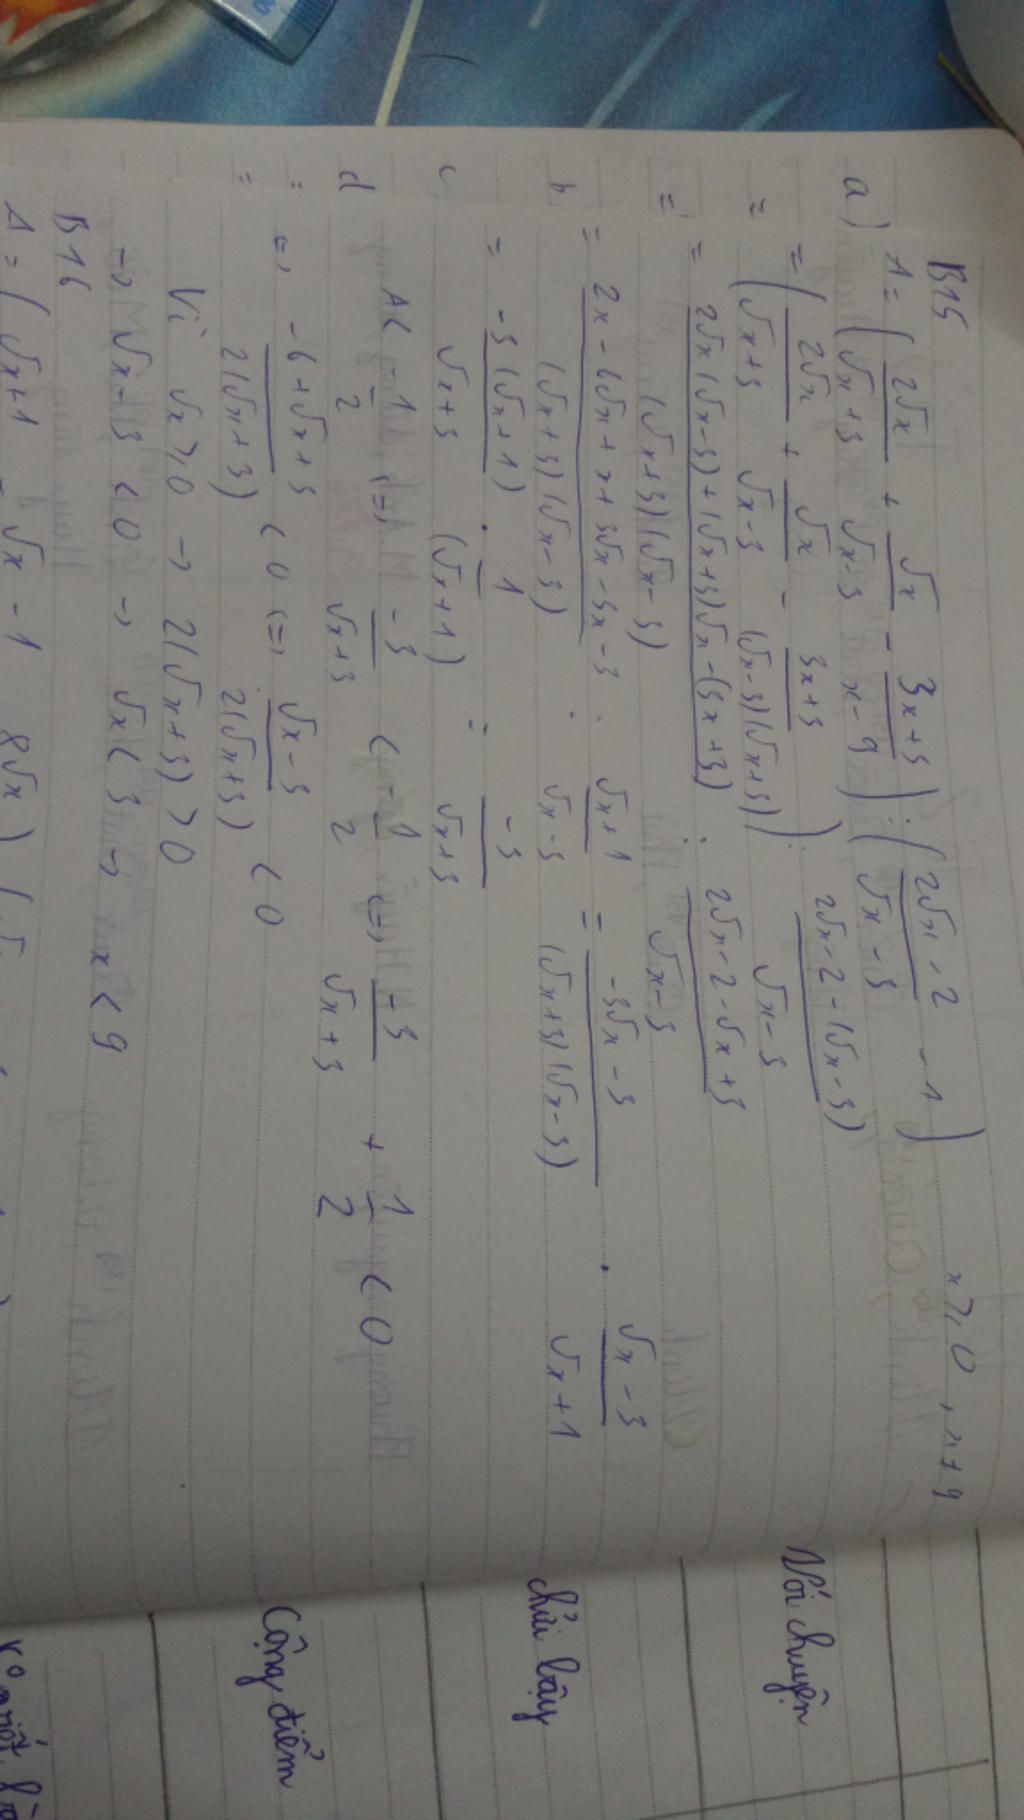 B15
x ≥ 0, x ≠ 9
a) A = (2√x/(√x+3) + √x/(√x-3) - (3x+3)/(x-9)) : ((2√x-2)/(√x-3) - 1)
= (2√x/(√x+3) + √x/(√x-3) - (3x+3)/((√x-3)(√x+3))) : (2√x-2-(√x-3))/(√x-3)
= (2√x(√x-3)+(√x+3)√x-(3x+3))/((√x+3)(√x-3)) : (2√x-2-√x+3)/(√x-3)
= (2x-6√x+x+3√x-3x-3)/((√x+3)(√x-3)) : (√x+1)/(√x-3) = (-3√x-3)/((√x+3)(√x-3)) . (√x-3)/(√x+1)
= -3(√x+1)/(√x+3) . 1/(√x+1) = -3/(√x+3)
A < -1/2 (=) -3/(√x+3) < -1/2 (=) -3/(√x+3) + 1/2 < 0
(=) (-6+√x+3)/(2(√x+3)) < 0 (=) (√x-3)/(2(√x+3)) < 0
Vì √x ≥ 0 → 2(√x+3) > 0
→ √x-3 < 0 → √x < 3 → x < 9
B16
A = (√x+1 - √x-1 8√x)
Nói chuyện
chửi bậy
Cộng điểm